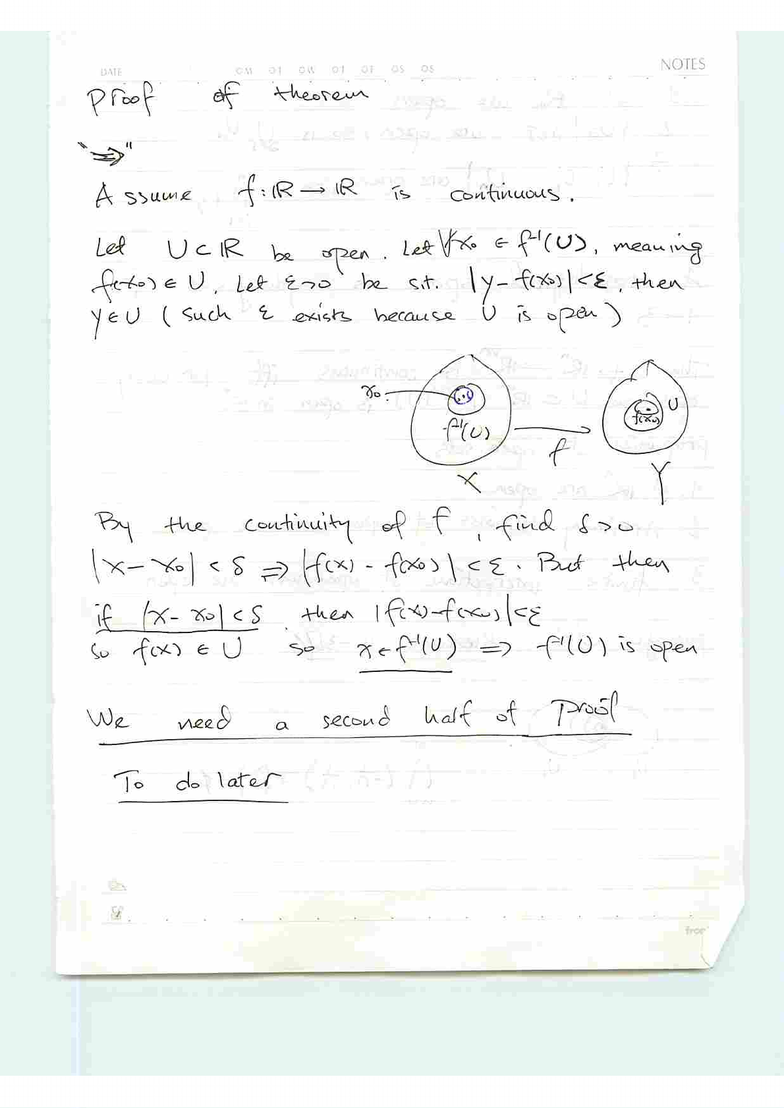 NOTES
DATE
Proof of theorem
"⇒"
Assume f: ℝ → ℝ is continuous.
Let U ⊂ ℝ be open. Let ∀x₀ ∈ f⁻¹(U), meaning
f(x₀) ∈ U. Let ε>0 be s.t. |y - f(x₀)| < ε, then
y ∈ U (such ε exists because U is open)
x₀
f⁻¹(U)
f
X
f(x₀)
U
Y
By the continuity of f, find δ>0
|x - x₀| < δ ⇒ |f(x) - f(x₀)| < ε. But then
if |x - x₀| < δ, then |f(x) - f(x₀)| < ε
so f(x) ∈ U so x ∈ f⁻¹(U) ⇒ f⁻¹(U) is open
We need a second half of proof
To do later